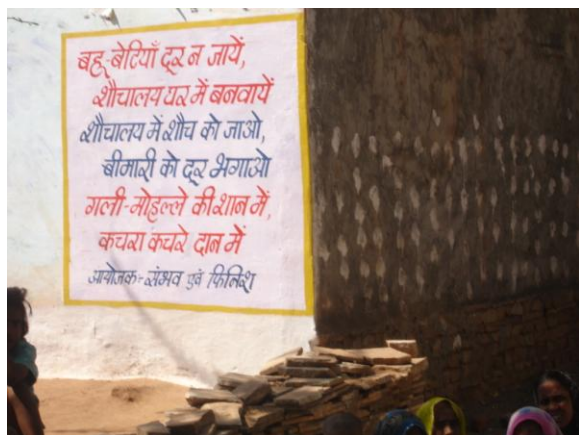 बहू-बेटियाँ दूर न जायें,
शौचालय घर में बनवायें
शौचालय में शौच को जाओ,
बीमारी को दूर भगाओ
गली-मोहल्ले की शान में,
कचरा कचरे दान में
आयोजक-संभव एवं फिनिश